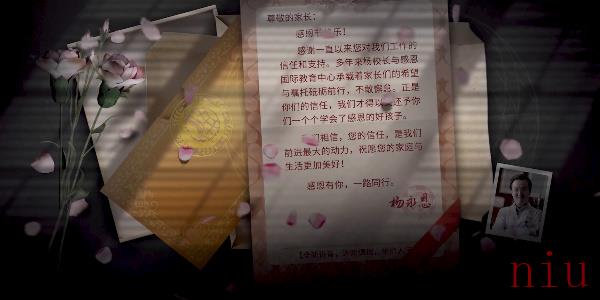 尊敬的家长：
感恩 乐！
感谢一直以来您对我们工作的
信任和支持。多年来杨校长与感恩
国际教育中心承载着家长们的希望
与嘱托砥砺前行，不敢懈怠。正是
你们的信任，我们才得以 还予你
们一个个学会了感恩的好孩子。
们相信，您的信任，是我们
前进最大的动力，祝愿您的家庭与
生活更加美好！
感恩有你，一路同行。
杨永恩
niu